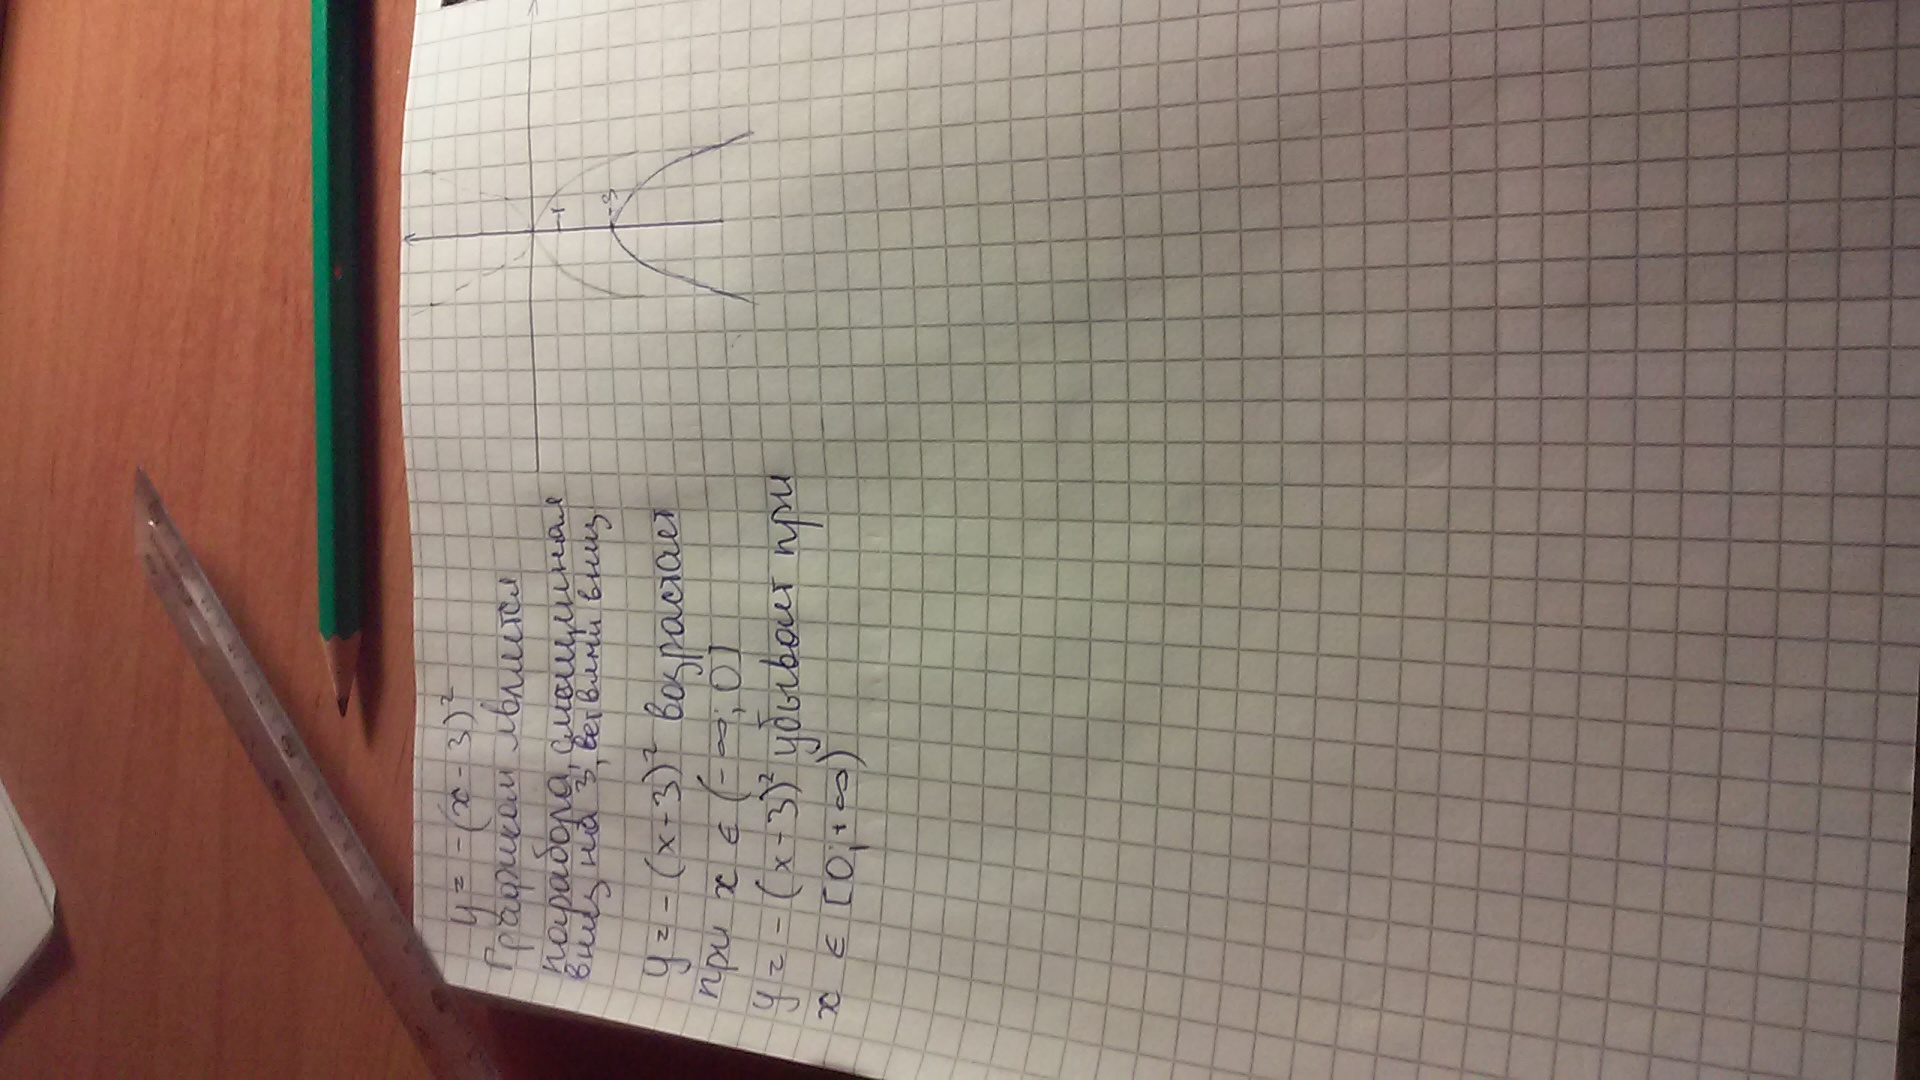 y = - (x - 3)²
Графиком является
парабола, смещенная
вниз на 3, ветвями вниз
y = - (x - 3)² возрастает
при x ∈ (- ∞; 0]
y = - (x - 3)² убывает при
x ∈ [0; + ∞)
-1
-3